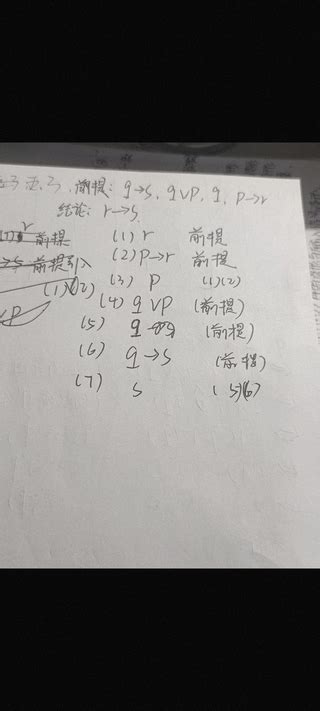 前提: q→s, q∨p, q, p→r
结论: r→s
前提 (1) r 前提
前提引入 (2) p→r 前提
(1)(2) (3) p (1)(2)
(4) q∨p (前提)
(5) q (前提)
(6) q→s (前提)
(7) s (5)(6)